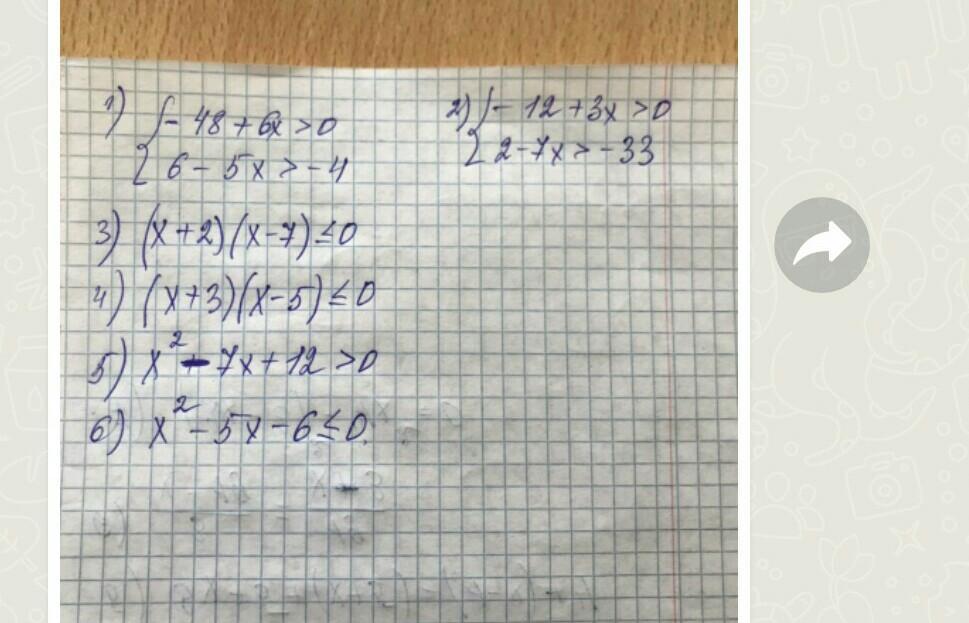 1) { -48 + 6x > 0
6 - 5x > -4
2) { -12 + 3x > 0
2 - 7x > -33
3) (x + 2)(x - 7) ≤ 0
4) (x + 3)(x - 5) ≤ 0
5) x² - 7x + 12 > 0
6) x² - 5x - 6 ≤ 0.